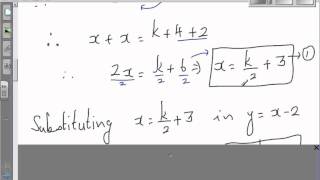 ∴ x + x = k + 4 + 2
∴ 2x/2 = k/2 + 6/2 ⇒ x = k/2 + 3 ①
Substituting x = k/2 + 3 in y = x - 2